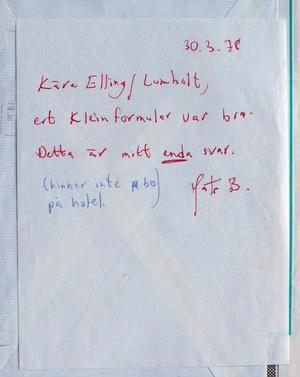 30.3.78
Kära Elling/Lumholt,
ert Kleinformular var bra.
Detta är mitt enda svar.
(hinner inte bo
på hotel.)
B.